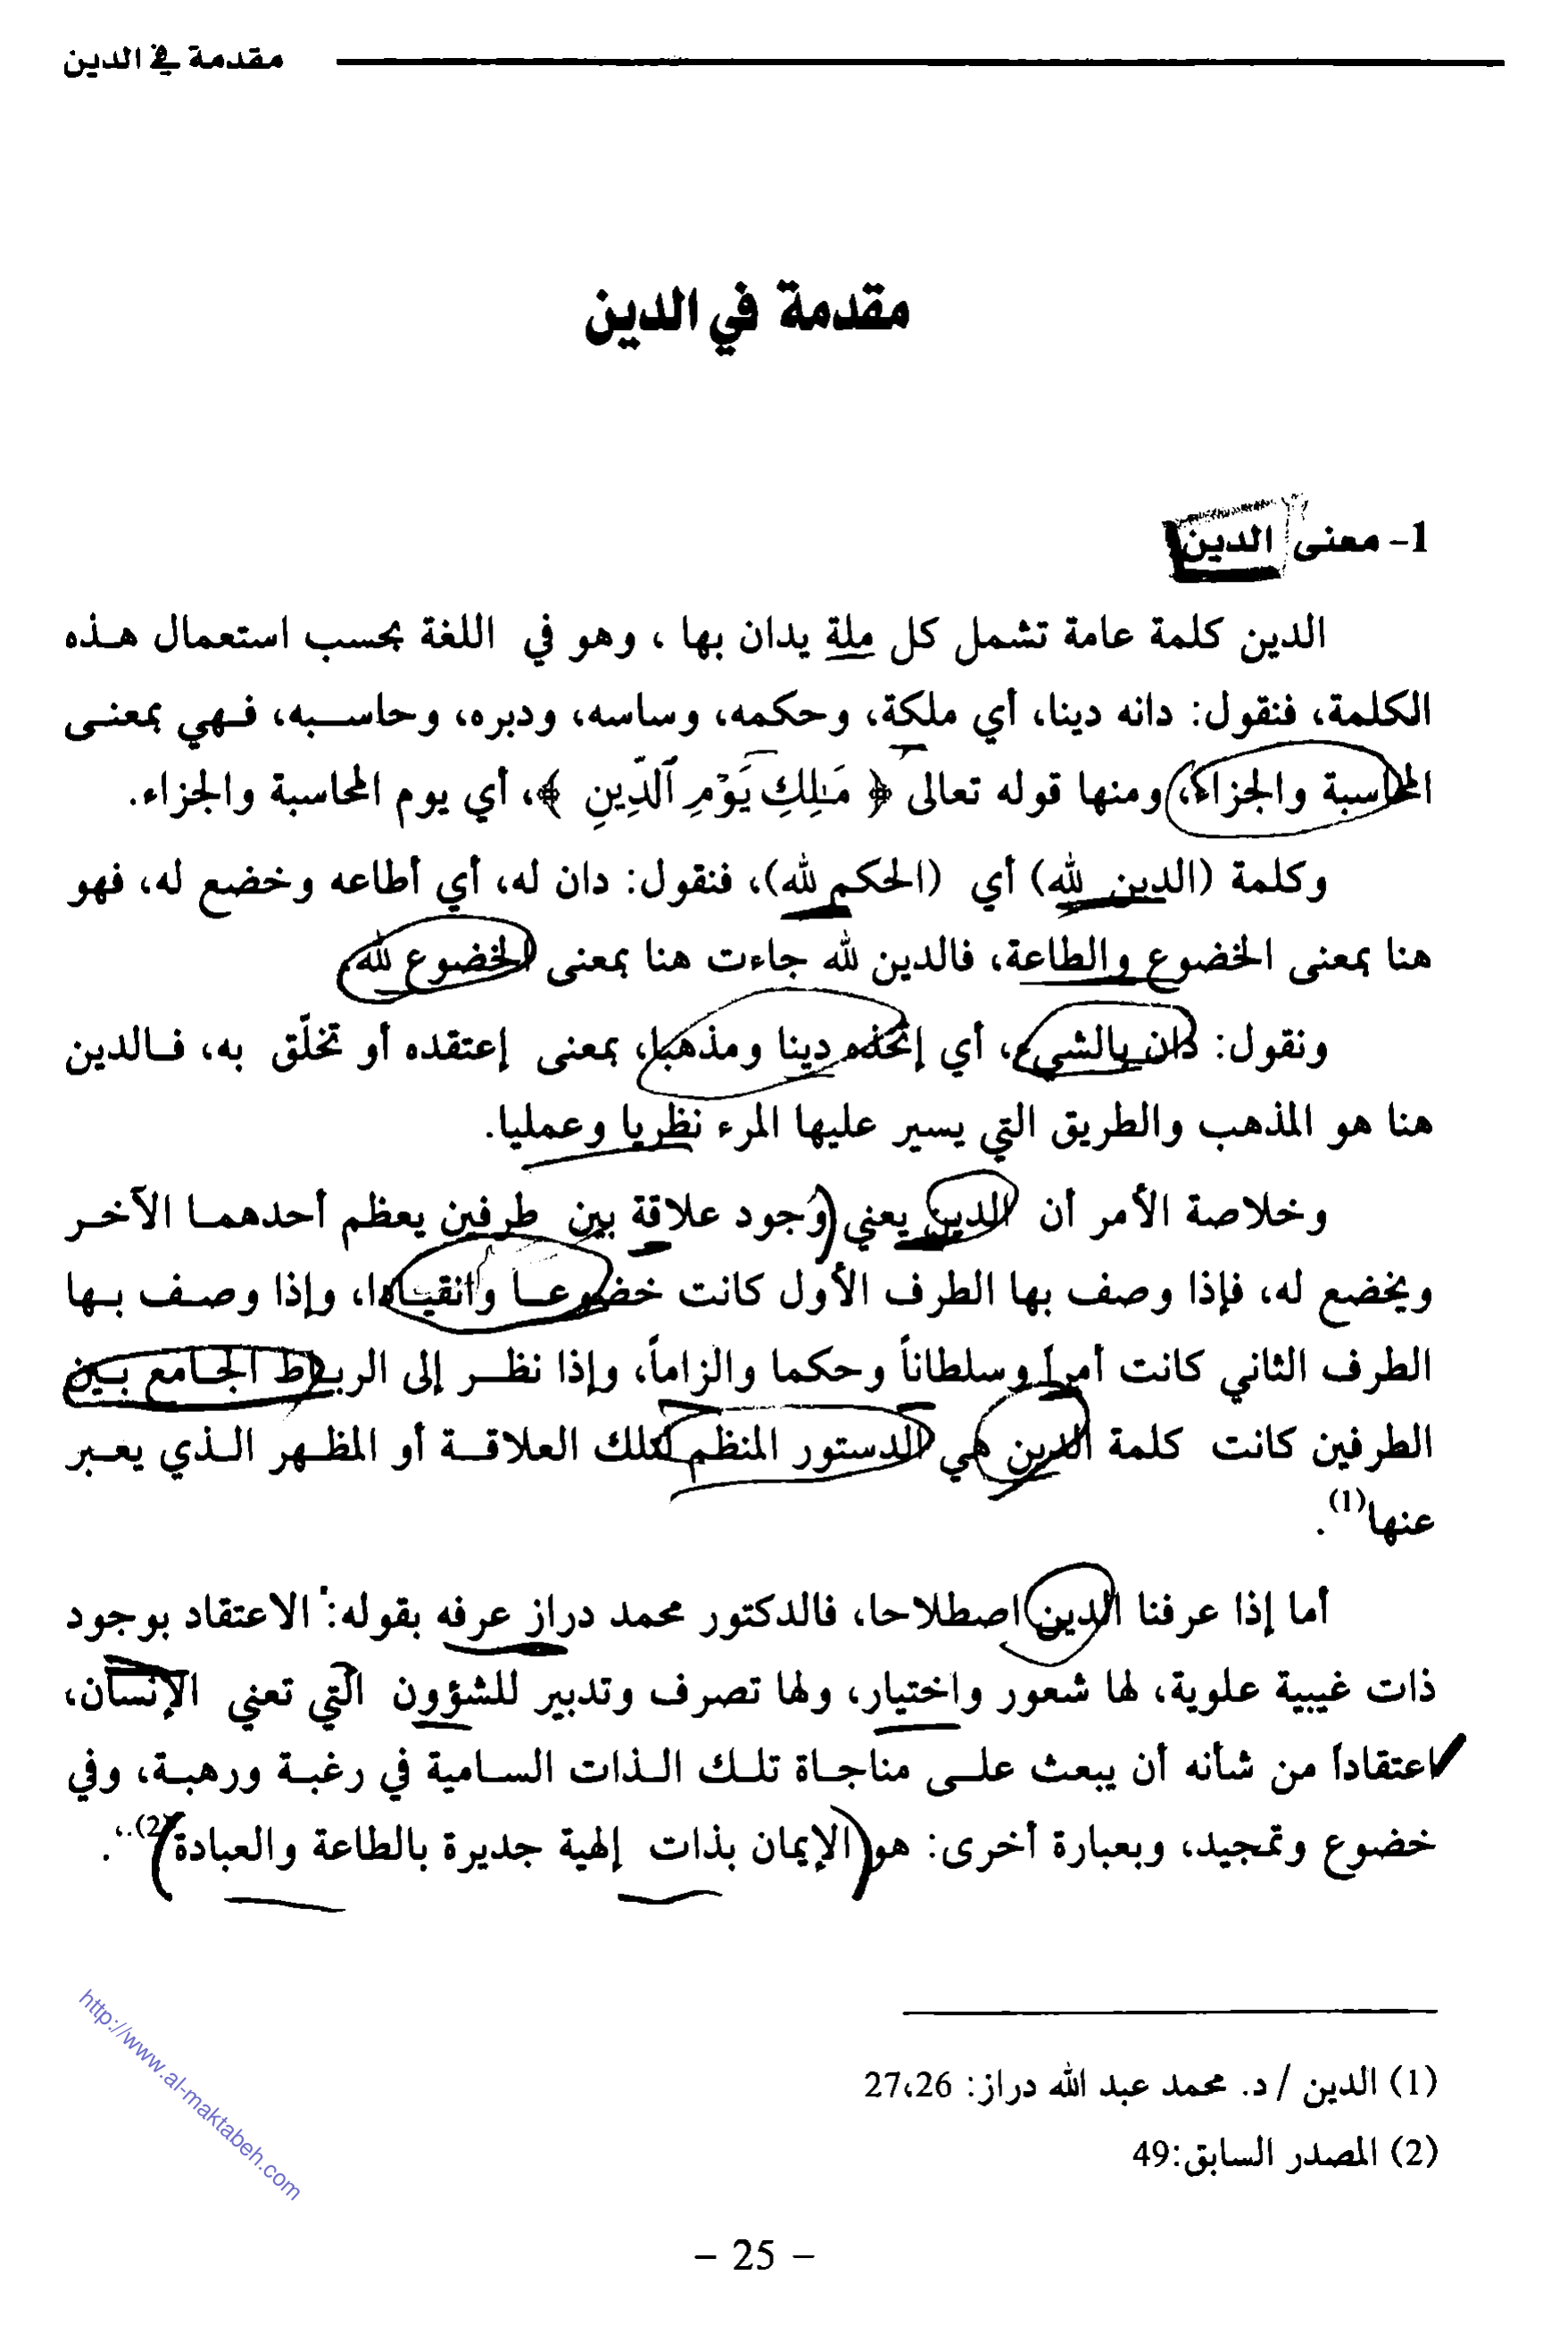 مقدمة في الدين
مقدمة في الدين
1- معنى الدين
الدين كلمة عامة تشمل كل ملة يدان بها ، وهو في اللغة بحسب استعمال هذه
الكلمة، فنقول: دانه دينا، أي ملكة، وحكمه، وساسه، ودبره، وحاسبه، فهي بمعنى
المحاسبة والجزاء، ومنها قوله تعالى ﴿ مَٰلِكِ يَوْمِ ٱلدِّينِ ﴾، أي يوم المحاسبة والجزاء.
وكلمة (الدين لله) أي (الحكم لله)، فنقول: دان له، أي أطاعه وخضع له، فهو
هنا بمعنى الخضوع والطاعة، فالدين لله جاءت هنا بمعنى الخضوع لله،
ونقول: دان بالشيء، أي إتخذه دينا ومذهبا، بمعنى إعتقده أو تخلّق به، فالدين
هنا هو المذهب والطريق التي يسير عليها المرء نظريا وعمليا.
وخلاصة الأمر أن الدين يعني وجود علاقة بين طرفين يعظم أحدهما الآخر
ويخضع له، فإذا وصف بها الطرف الأول كانت خضوعا وانقيادا، وإذا وصف بها
الطرف الثاني كانت أمراً وسلطاناً وحكما والزاماً، وإذا نظر إلى الرباط الجامع بين
الطرفين كانت كلمة الدين هي الدستور المنظم لتلك العلاقة أو المظهر الذي يعبر
عنها(1).
أما إذا عرفنا الدين اصطلاحا، فالدكتور محمد دراز عرفه بقوله: الاعتقاد بوجود
ذات غيبية علوية، لها شعور واختيار، ولها تصرف وتدبير للشؤون التي تعني الإنسان،
اعتقاداً من شأنه أن يبعث على مناجاة تلك الذات السامية في رغبة ورهبة، وفي
خضوع وتمجيد، وبعبارة أخرى: هو الإيمان بذات إلهية جديرة بالطاعة والعبادة(2).
(1) الدين / د. محمد عبد الله دراز: 27،26
(2) المصدر السابق:49
http://www.al-maktabeh.com
- 25 -